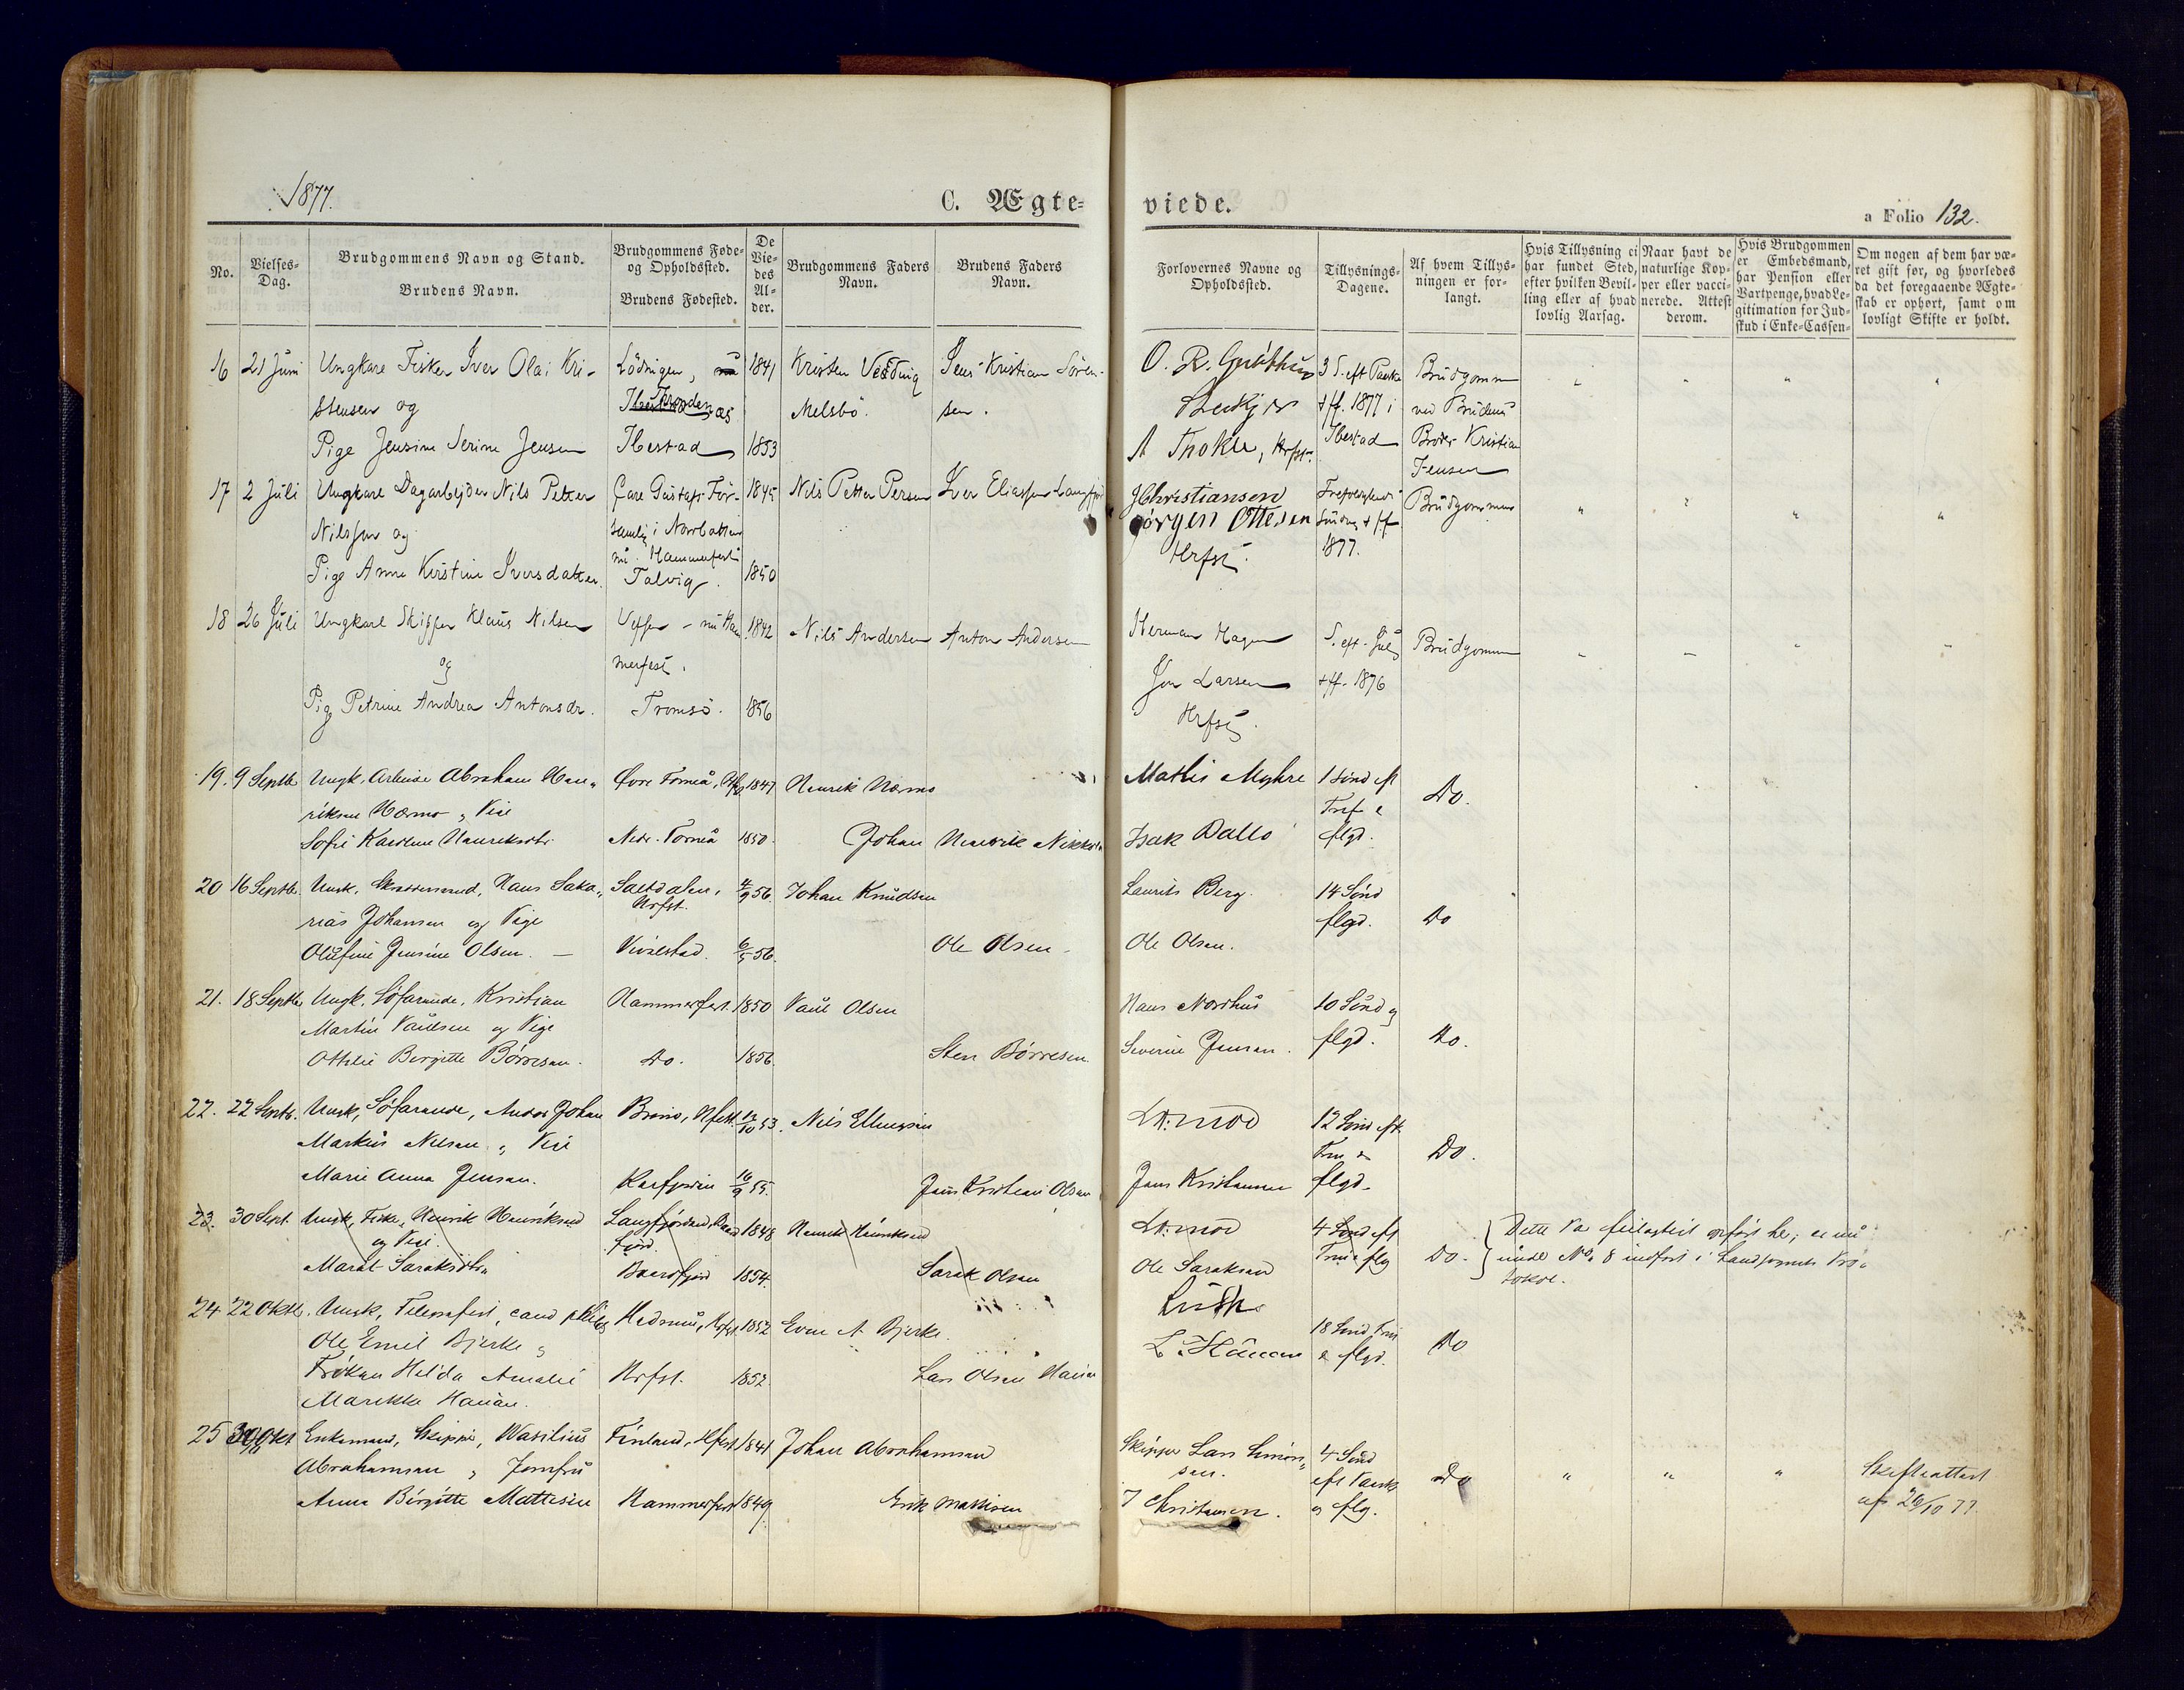 1877.
C. Ægte-
viede.
a Folio 132.
No.
Vielses-
Dag.
Brudgommens Navn og Stand.
Brudens Navn.
Brudgommens Føde-
og Opholdssted.
Brudens Fødested.
De
Vie-
des
Al-
der.
Brudgommens Faders
Navn.
Brudens Faders
Navn.
Forlovernes Navne og
Opholdssted.
Tillysnings-
Dagene.
Af hvem Tillys-
ningen er for-
langt.
Hvis Tillysning ei
har fundet Sted,
efter hvilken Bevil-
ling eller af hvad
lovlig Aarsag.
Naar havt de
naturlige Kop-
per eller vacci-
nerede. Attest
derom.
Hvis Brudgommen
er Embedsmand,
har Pension eller
Vartpenge, hvad Le-
gitimation for Ind-
skud i Enke-Cassen-
Om nogen af dem har væ-
ret gift før, og hvorledes
da det foregaaende Ægte-
skab er ophørt, samt om
lovligt Skifte er holdt.
16 21 Juni Ungkare Fisker Iver Olai Kri-
stensen og
Pige Jensine Serine Jensen
Lödingen,
Ibestad
1841
1853
Kristen
Melsbö.
Jens Kristian Sören-
sen.
O. R.
A Thokle, Hrfst.
3 S. eft Paaske
+ ff. 1877 i
Ibestad
Brudgomm
ved Brudens
Broder Kristian
Jensen
17 2 Juli Ungkare Dagarbejder Nils Petter
Nilssen og
Pige Anne Kirstine Iversdatter
Care Gustafs For-
samlig i Norrbotten
nu Hammerfest
Talvig.
1845
1850
Nils Petter Persen
Iver Eliassen Langfjord
J Christiansen
Jörgen Ottesen
Hrfst.
Söndag + ff
1877.
Brudgommen
18 26 Juli Ungkarl Skipper Klaus Nilsen
og
Pig Petrine Andrea Antonsdr.
Vefsen - nu Ham
merfest.
Tromsö.
1842
1856
Nils Andersen
Anton Andersen
Herman Hagen
Jon Larsen
Hrfst.
S. eft. Jul
+ ff. 1876
Brudgomm
19. 9 Septbr Ungk. Arbeider Abraham Hen-
riksen Wærmo, Pige
Sofie Karoline Henriksdtr.
Övre Torneå,
Nedr. Torneå
1847
1850.
Henrik Wærmo
Johan Henrik
Mathis Myhre
Isak Dallo
1 Sönd eft
Tref &
flgd.
Do.
20 16 Septbr. Ungk. Skræddersvend, Hans Saka-
rias Johansen og Pige
Olufine Jensine Olsen. —
Saltdalen,
Hrfst.
4/9 56.
6/5 56.
Johan Knudsen
Ole Olsen
Laurits Berg.
Ole Olsen.
14 Sönd
flgd.
Do
21. 18 Septbr Ungk. Söfarende, Kristian
Martin Paulsen og Pige
Ottilie Bergitte Börresen.
Hammerfest.
Do.
1850
1856.
Paul Olsen
Sten Börresen
Hans Nordhus
Severin Jensen.
10 Sönd og
flgd.
Do.
22. 22 Septb. Ungk, Söfarende, Anders Johan
Markus Nilsen, Pige
Marie Anna Jensen.
Brönö, Hfest.
Kaafjorden
12/10 53.
16/9 55.
Nils Ellingsen
Jens Kristian Olsen
Jens Kristiansen
12 Sönd eft.
Trin &
flgd.
Do.
23. 30 Sept. Ungk, Fisker, Henrik Henriksen
og Pige.
Marit Saraksdtr.
fjord.
1848
1854.
Henrik Henriksen
Sarak Olsen
Ole Saraksen
4 Sönd eft
Trin & flg
Do.
Dette Par feilagtigt opfört her; er nu
under No. 8 indfört i Landsognets Pro-
tokol.
24 22 Oktbr. Ungk, Telegrafist, cand philos
Ole Emil Bjerke,
Fröken Hilda Amalie
Marikka Hauan.
Hrfst.
1852
1852.
Even A Bjerke.
Lars Olsen Hauan
L. Hauan
18 Sönd Trin
& flgd.
Do
25 30 Okt Enkemand, Skipper, Wasilius
Abrahamsen, Jomfru
Anna Birgitte Mattisen
Finland, Hfest
Hammerfest
1841
1849
Johan Abrahamsen
Erik Mattisen
Skipper Lars Simon-
sen.
J Christiansen.
4 Sönd
eft Paask
og flg.
Do
Skifteattest
af 26/10 77.